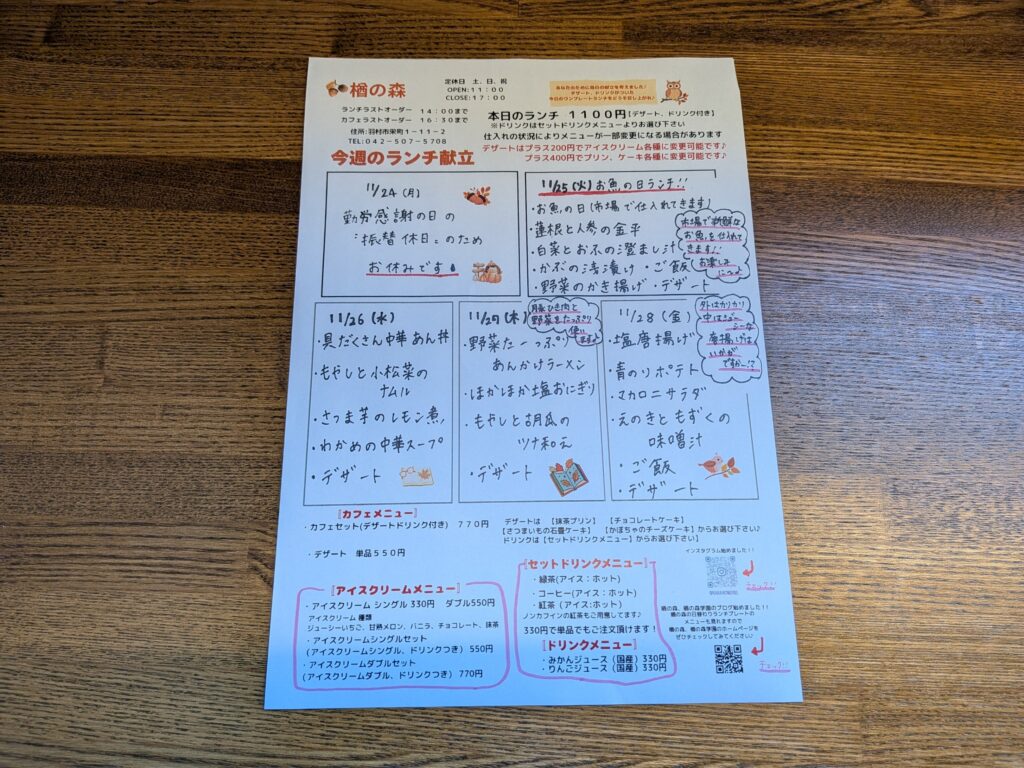 楢の森
定休日 土、日、祝
OPEN:11:00
CLOSE:17:00
ランチラストオーダー 14:00まで
カフェラストオーダー 16:30まで
住所:羽村市栄町1-11-2
TEL:042-507-5708
今週のランチ献立
デザート、ドリンクがついた
本日のランチ 1100円【デザート、ドリンク付き】
※ドリンクはセットドリンクメニューよりお選び下さい
仕入れの状況によりメニューが一部変更になる場合があります
デザートはプラス200円でアイスクリーム各種に変更可能です♪
プラス400円でプリン、ケーキ各種に変更可能です♪
11/24(月)
勤労感謝の日の
"振替休日"のため
お休みです
11/25(火)お魚の日ランチ!!
・お魚の日(市場で仕入れてきます)
・蓮根と人参の金平
・白菜とお麩の澄まし汁
・かぶの浅漬け ・ご飯
・野菜のかき揚げ ・デザート
市場で新鮮な
お魚を仕入れて
きます!!
お楽しみ
に〜♪
11/26(水)
・具だくさん中華あん丼
・もやしと小松菜の
ナムル
・さつま芋のレモン煮
・わかめの中華スープ
・デザート
11/27(木)
豚ひき肉と
野菜をたっぷり
使います♪
・野菜たーっぷり
あんかけラーメン
・ほかほか塩おにぎり
・もやしと胡瓜の
ツナ和え
・デザート
11/28(金)
外はカリカリ
中はじゅー
シーな
唐揚げは
いかが
ですかー!?
・塩唐揚げ
・青のりポテト
・マカロニサラダ
・えのきともずくの
味噌汁
・ご飯
・デザート
『カフェメニュー』
・カフェセット(デザートドリンク付き) 770円
・デザート 単品550円
デザートは 【抹茶プリン】 【チョコレートケーキ】
【さつまいもの石畳ケーキ】 【かぼちゃのチーズケーキ】からお選び下さい♪
ドリンクは【セットドリンクメニュー】からお選び下さい】
『アイスクリームメニュー』
・アイスクリーム シングル 330円 ダブル550円
アイスクリーム 種類
ジューシーいちご、甘熟メロン、バニラ、チョコレート、抹茶
・アイスクリームシングルセット
(アイスクリームシングル、ドリンクつき) 550円
・アイスクリームダブルセット
(アイスクリームダブル、ドリンクつき) 770円
『セットドリンクメニュー』
・緑茶(アイス:ホット)
・コーヒー(アイス:ホット)
・紅茶 (アイス:ホット)
ノンカフインの紅茶もご用意してます♪
330円で単品でもご注文頂けます!
『ドリンクメニュー』
・みかんジュース(国産)330円
・りんごジュース(国産)330円
インスタグラム始めました!!
チェック!!
楢の森、楢の森学園のブログ始めました!!
楢の森の日替わりランチプレートの
メニューも見れますので
楢の森、楢の森学園のホームページを
ぜひチェックしてみてください♪
チェック!!